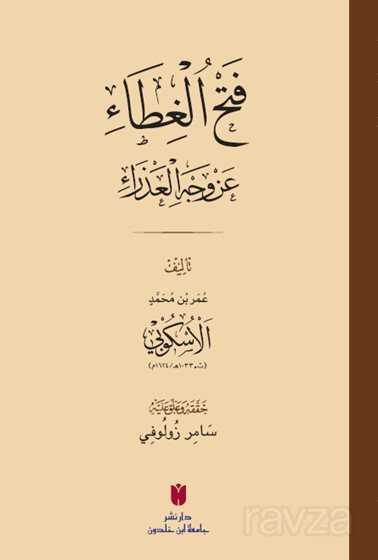 فَتْحُ الْغِطَاءِ
عَنْ وَجْهِ الْعَذْرَاءِ
تَأْلِيْفُ
عُمَر بْن مُحَمَّدٍ
الْأُسْكُوبِيّ
(ت. ١٠٣٣هـ/١٦٢٤م)
حَقَّقَهُ وَعَلَّقَ عَلَيْهِ
سَامِر زُولُوفِي
دار نشر
جامعة ابن خلدون
ravza